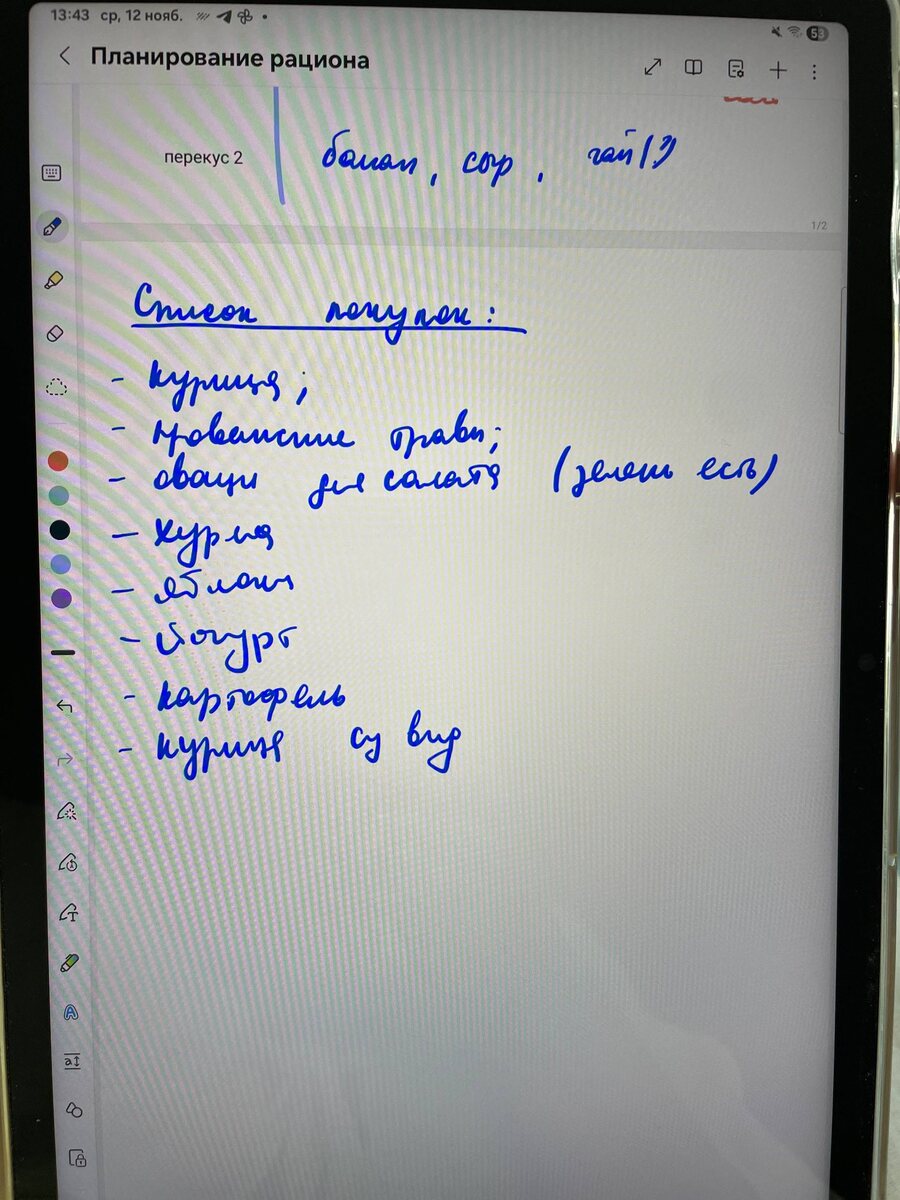 13:43 ср, 12 нояб.
53
Планирование рациона
перекус 2
банан, сыр, чай(?)
1/2
Список покупок:
- курица;
- прованские травы;
- овощи для салата (зелень есть)
- хурма
- яблоки
- йогурт
- картофель
- курица су вид